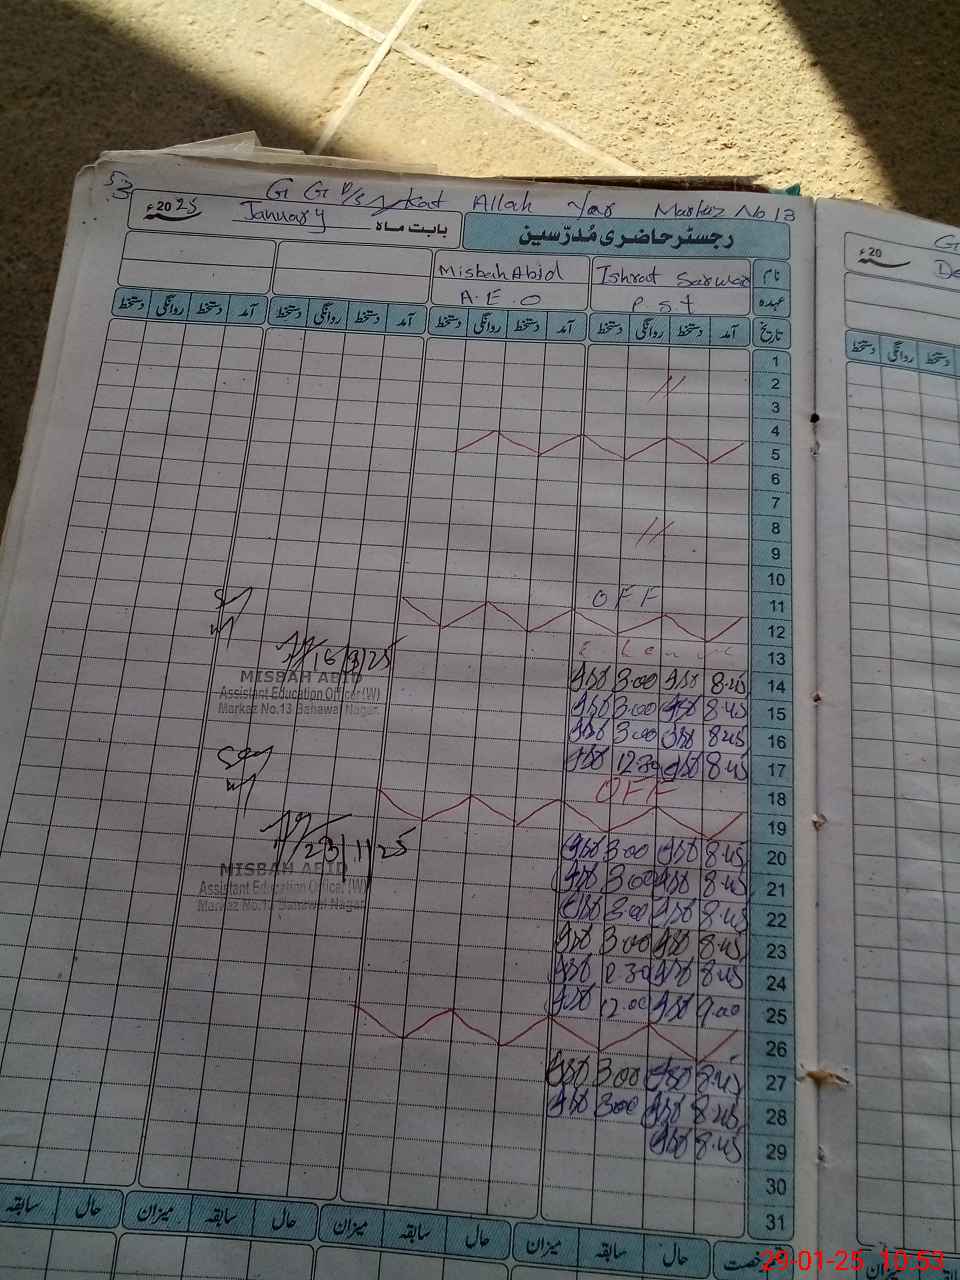 53
G G P/S Kat Allah Yar Markaz No 13
رجسٹر حاضری مُدرّسین
بابت ماہ January
2025ء
نام Ishrat Sarwar Misbah Abid
عہدہ P.S.T A.E.O
تاریخ آمد دستخط روانگی دستخط آمد دستخط روانگی دستخط آمد دستخط روانگی دستخط آمد دستخط روانگی دستخط
1
2 //
3
4
5
6
7
8 //
9
10
11 OFF
12
13
14 8.45 3.00
15 8.45 3.00
16 8.45 3.00
17 8.45 12.30
18 OFF
19
20 8.45 3.00
21 8.45 3.00
22 8.45 3.00
23 8.45 3.00
24 8.45
25 9.00 12.00
26
27 8.45 3.00
28 8.45 3.00
29 8.45
30
31
MISBAH ABID
Assistant Education Officer (W)
Markaz No.13 Bahawal Nagar
MISBAH ABID
Assistant Education Officer (W)
Markaz No.13 Bahawal Nagar
حال سابقہ میزان حال سابقہ میزان حال سابقہ میزان حال سابقہ
20ء
روانگی دستخط
دستخط
میزان
29-01-25 10:53